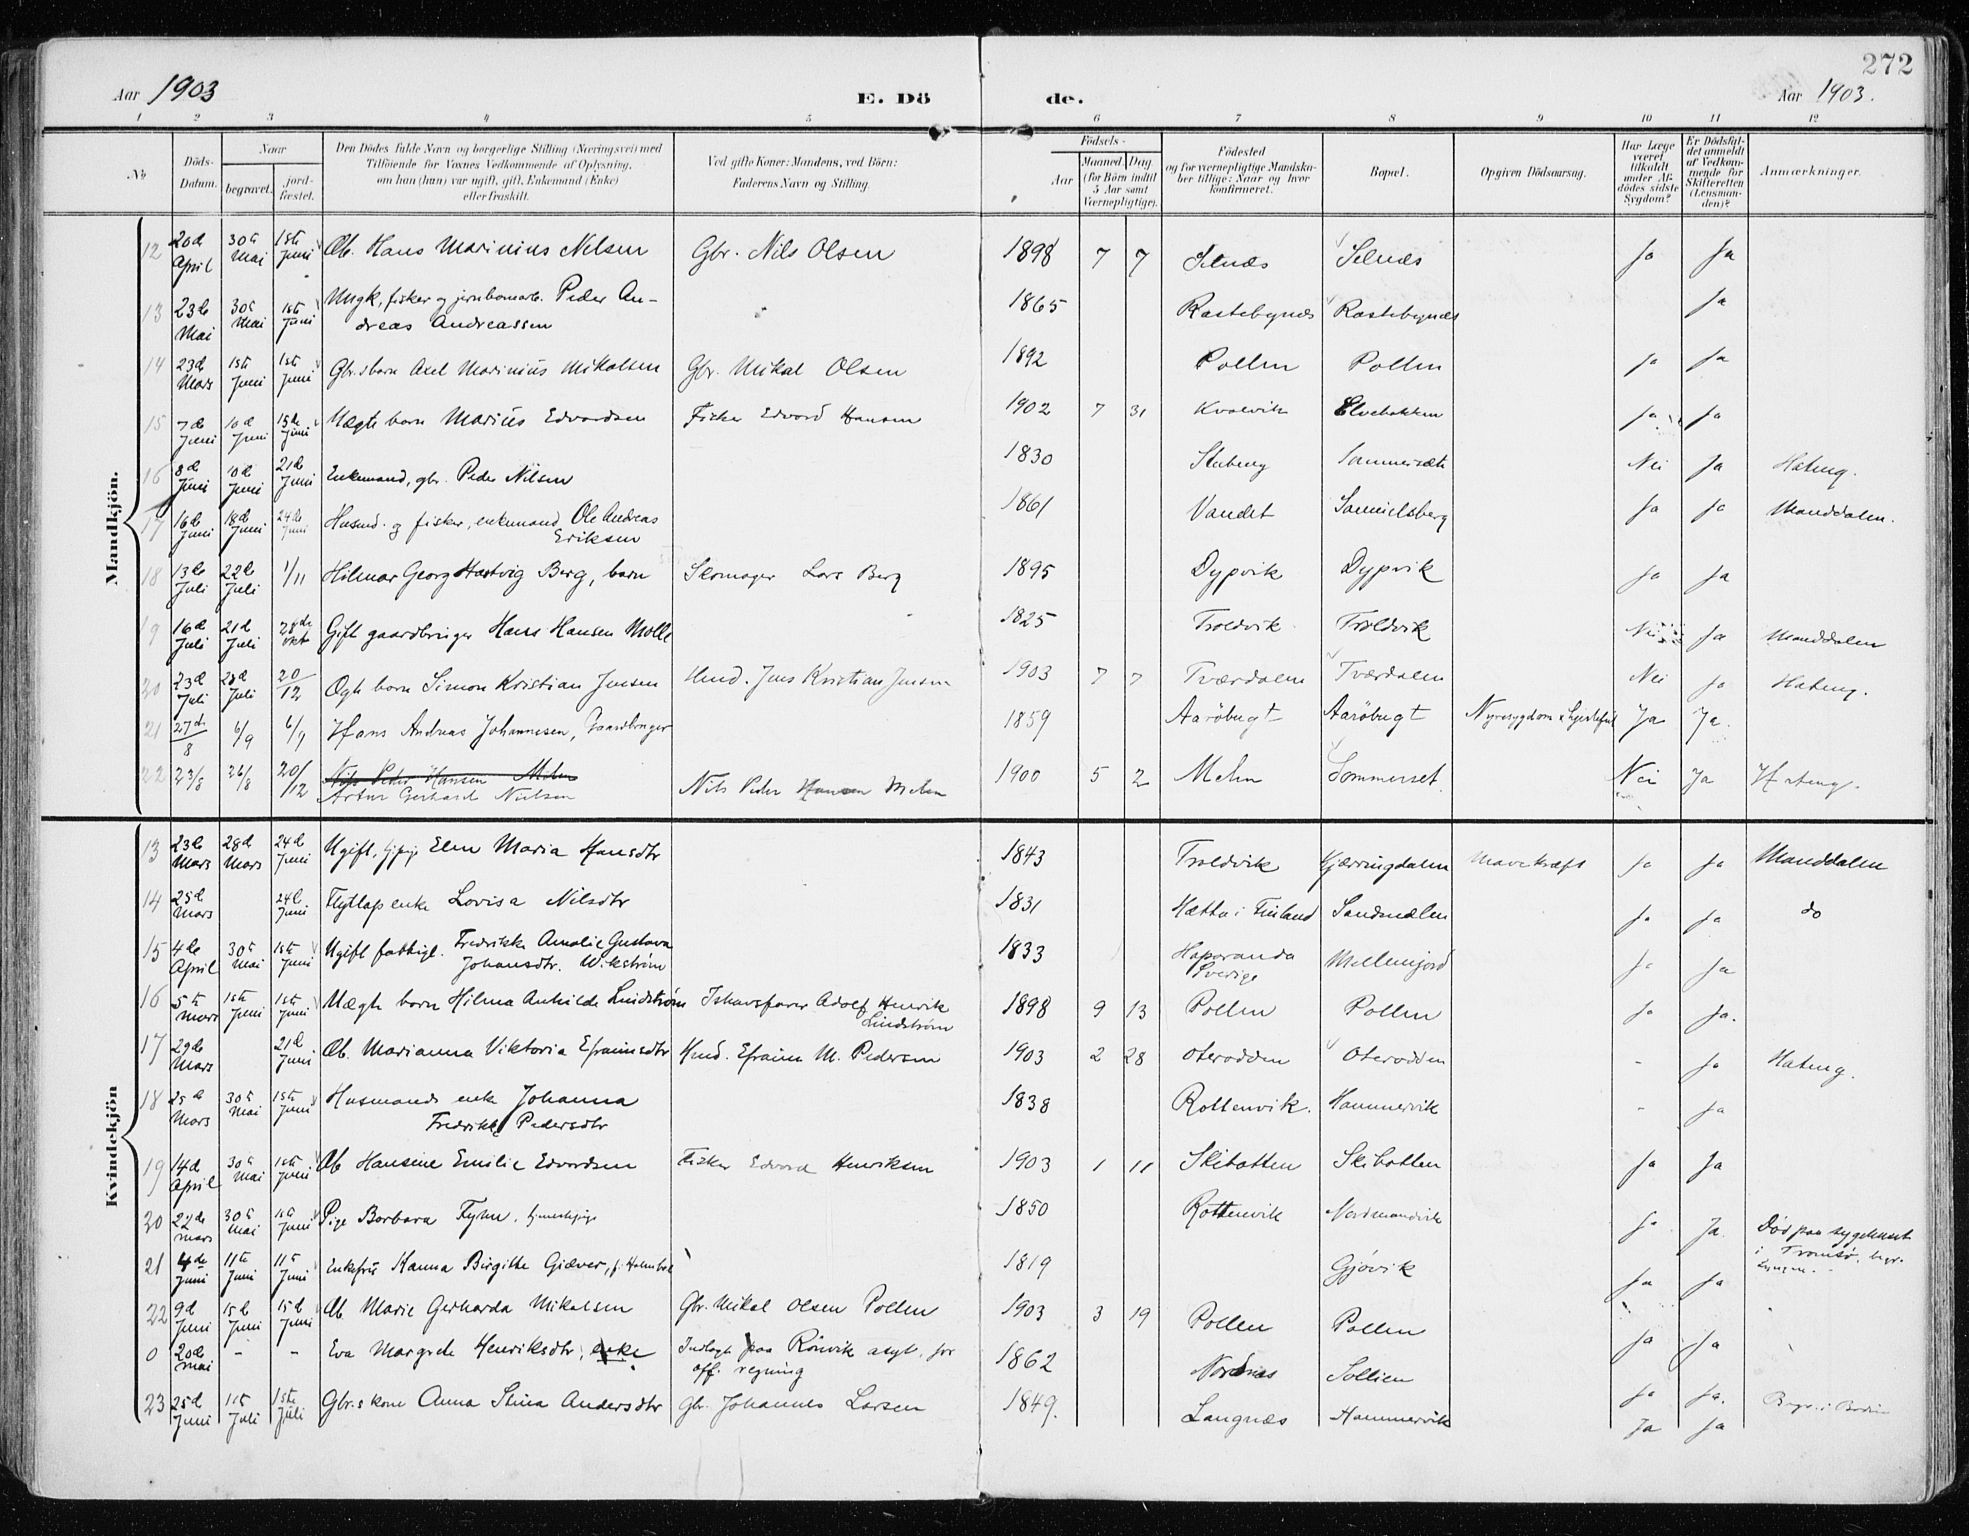 272
Aar 1903 E. Dö de. Aar 1903.
1 2 3 4 5 6 7 8 9 10 11 12
No. Döds-Datum. Naar begravet. jord-fæstet. Den Dödes fulde Navn og borgerlige Stilling (Næringsvei) med Tilföiende for Voxnes Vedkommende af Oplysning, om han (hun) var ugift, gift, Enkemand (Enke) eller fraskilt. Ved gifte Koner: Mandens, ved Börn: Faderens Navn og Stilling. Födsels- Aar Maaned. Dag. (for Börn indtil 5 Aar samt Værnepligtige). Födested og for værnepligtige Mandskaber tillige: Naar og hvor konfirmeret. Bopæl. Opgiven Dödsaarsag. Har Læge været tilkaldt under Afdödes sidste Sygdom? Er Dödsfaldet anmeldt af Vedkommende for Skifteretten (Lensmanden)? Anmærkninger.
Mandkjön.
12 20d April 30te Mai 1ste Juni Æb. Hans Marinius Nilsen Gbr. Nils Olsen 1898 7 7 Selnæs Selnæs Ja Ja
13 23de Mai 30te Mai 1ste Juni Ungk, fisker og jernbanearb. Peder An-
dreas Andreassen 1865 Rastebynæs Rastebynæs Ja
14 23d Mars 1ste Juni 1ste Juni Gbr.s barn Axel Marinius Mikalsen Gbr. Mikal Olsen 1892 Pollen Pollen Ja Ja
15 7de Juni 10d Juni 15de Juni Uægte barn Marius Edvardsen Fisker Edvard Hansen 1902 7 31 Kvalvik Elvebakken Ja Ja
16 8d Juni 10d Juni 21d Juni Enkemand, gbr. Peder Nilsen 1830 Sommersæte Nei Ja Hateng.
17 16d Juni 18d Juni 24de Juni Husmd. og fisker, enkemand Ole Andreas
Eriksen 1861 Vandet Samuelsberg Ja Ja Manddalen.
18 13de Juli 22de Juli 1/11 Hilmar Georg Hartvig Berg, barn Skomager Lars Berg 1895 Dypvik Dypvik Ja Ja
19 16d Juli 21d Juli 28de Okt Gift gaardbruger Hans Hansen Molle 1825 Troldvik Troldvik Nei Ja Manddalen
20 23d Juli 28d Juli 20/12 Ægte barn Simon Kristian Jensen Hmd. Jens Kristian Jensen 1903 7 7 Tværdalen Tværdalen Nei Ja Hateng.
21 27d/8 6/9 6/9 Hans Andreas Johannesen, Gaardbruger 1859 Aaröbugt Aaröbugt Nyresygdom & Hjertefeil Ja Ja.
22 23/8 26/8 20/12 Nils Peder Hansen Melen
Artur Gerhard Nielsen Nils Peder Hansen Melen 1900 5 2 Melen Sommerset Nei Ja Hateng.
Kvindekjön
13 23de Mars 28d Mars 24d Juni Ugift, Elen Maria Hansdtr 1843 Troldvik Kjærringdalen Mavekræft Ja Ja Manddalen
14 25d Mars 24d Juni Flytlap enke Lovisa Nilsdtr 1831 Hætta i Finland Sandmælen Ja Ja do
15 4de April 30te Mai 1ste Juni Ugift fattigl. Fredrikke Amalie Gustava
Johansdtr. Wikström 1833 Haparanda
Sverige Mellemjord Ja Ja
16 5te Mars 1ste Juni 1ste Juni Uægte barn Hilma Anhilde Lindström Ishavsfarer Adolf Henrik
Lindström 1898 9 13 Pollen Pollen Ja Ja.
17 29de Mars 21d Juni Æb. Marianna Viktoria Efraimsdtr Hmd. Efraim M. Pedersen 1903 2 28 Oterodden Oterodden - Ja Hateng.
18 25d Mars 30te Mai 1ste Juni Husmands enke Johanna
Fredrikke Pedersdtr 1838 Rottenvik. Hammervik - Ja
19 14d April 30te Mai 1ste Juni Æb Hansine Emilie Edvardsen Fisker Edvard Henriksen 1903 1 11 Skibotten Skibotten Ja Ja
20 22de Mars 30te Mai 1ste Juni Pige Barbara Fyhn, tjenestepige 1850 Rottenvik Nordmandvik Ja Ja. Död paa sygehuset
i Tromsö, begr.
Lyngen.
21 4de Juni 11te Juni 11te Juni Enkefru Hanna Birgitte Giæver, f. Holmboe 1819 Gjövik Ja Ja
22 9d Juni 15d Juni 15d Juni Æb Marie Gerharda Mikalsen Gbr. Mikal Olsen Pollen 1903 3 19 Pollen Pollen Ja Ja
0 20de Mai - - Eva Margrete Henriksdtr, enke Indlagt paa Rönvik asyl, for
off. regning 1862 Nordnæs Sollien Ja Ja. Begr. i Bodin
23 25d Juni 1ste Juli 1ste Juli Gbr.s kone Anna Stina Andersdtr Gbr. Johannes Larsen 1849. Langnæs Hammervik Ja Ja